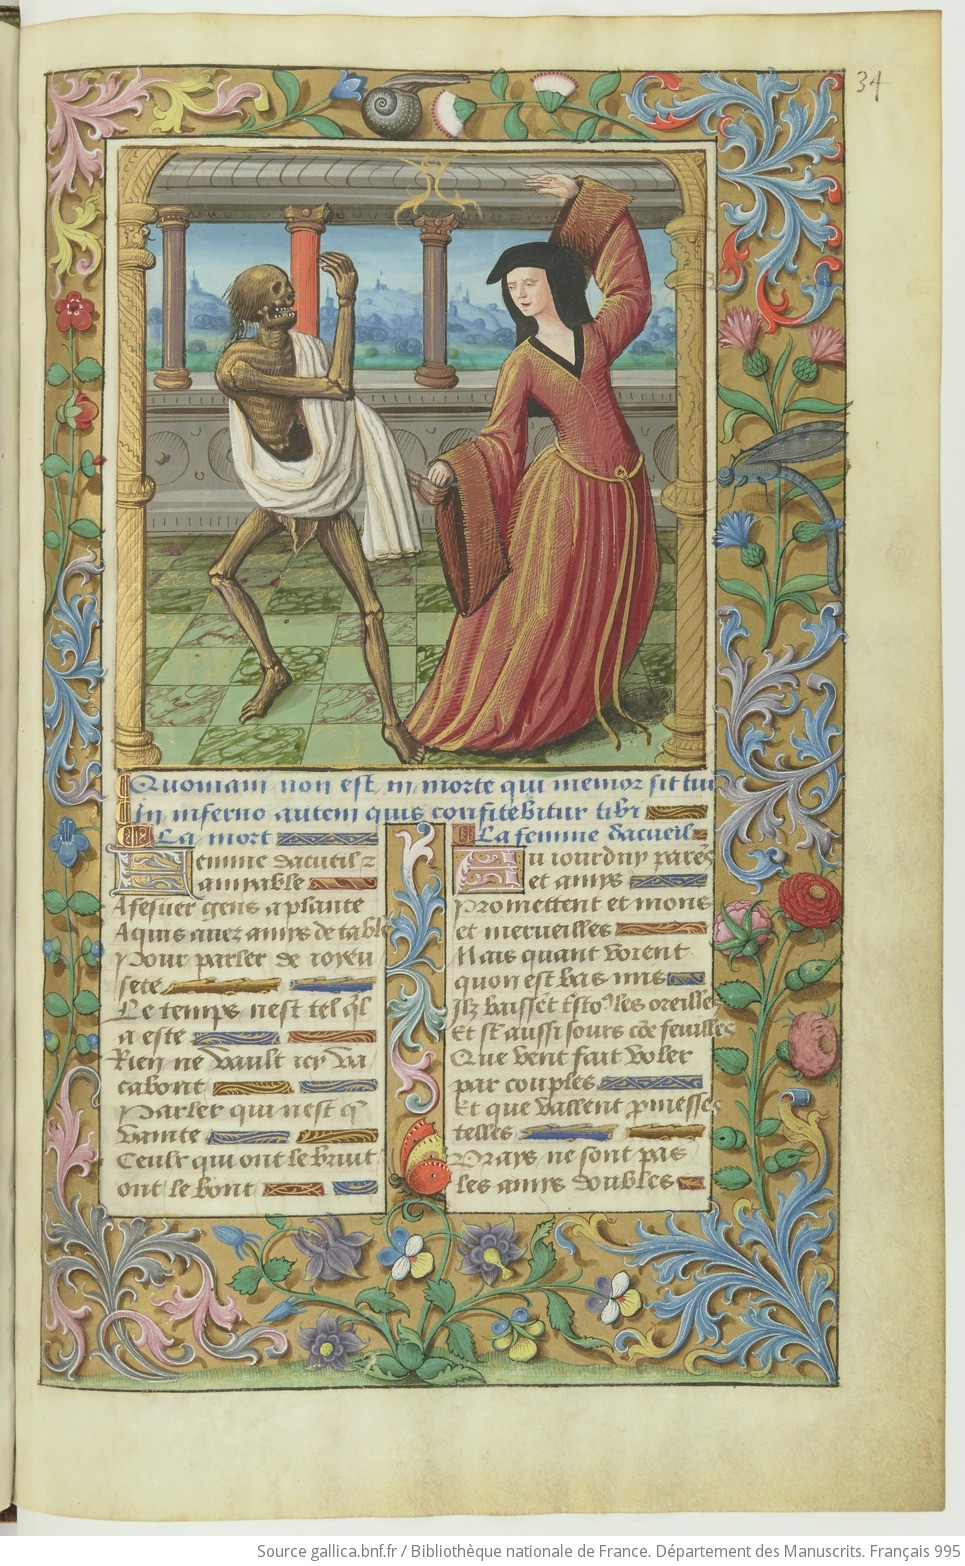 34
Quoniam non est in morte qui memor sit tui
In inferno autem quis confitebitur tibi
La mort
Femme dacueil z
amyable
A festier gens a plante
A quis auez amys de table
Pour parler de ioyeu
sete
Le temps nest tel ql
a este
Rien ne vault icy va
cabont
Parler qui nest q̃
vainte
Ceulx qui ont le bruit
ont le bont
La femme dacueil
Au iourduy parẽs
et amys
Promettent et mons
et merueilles
Mais quant voient
quon est bas mis
Ilz baissẽt les oreilles
Et sõt aussi sours cõe feuilles
Que vent fait voler
par couples
Et que vallent pmesses
telles
Vrays ne sont pas
les amys doubles
Source gallica.bnf.fr / Bibliothèque nationale de France. Département des Manuscrits. Français 995